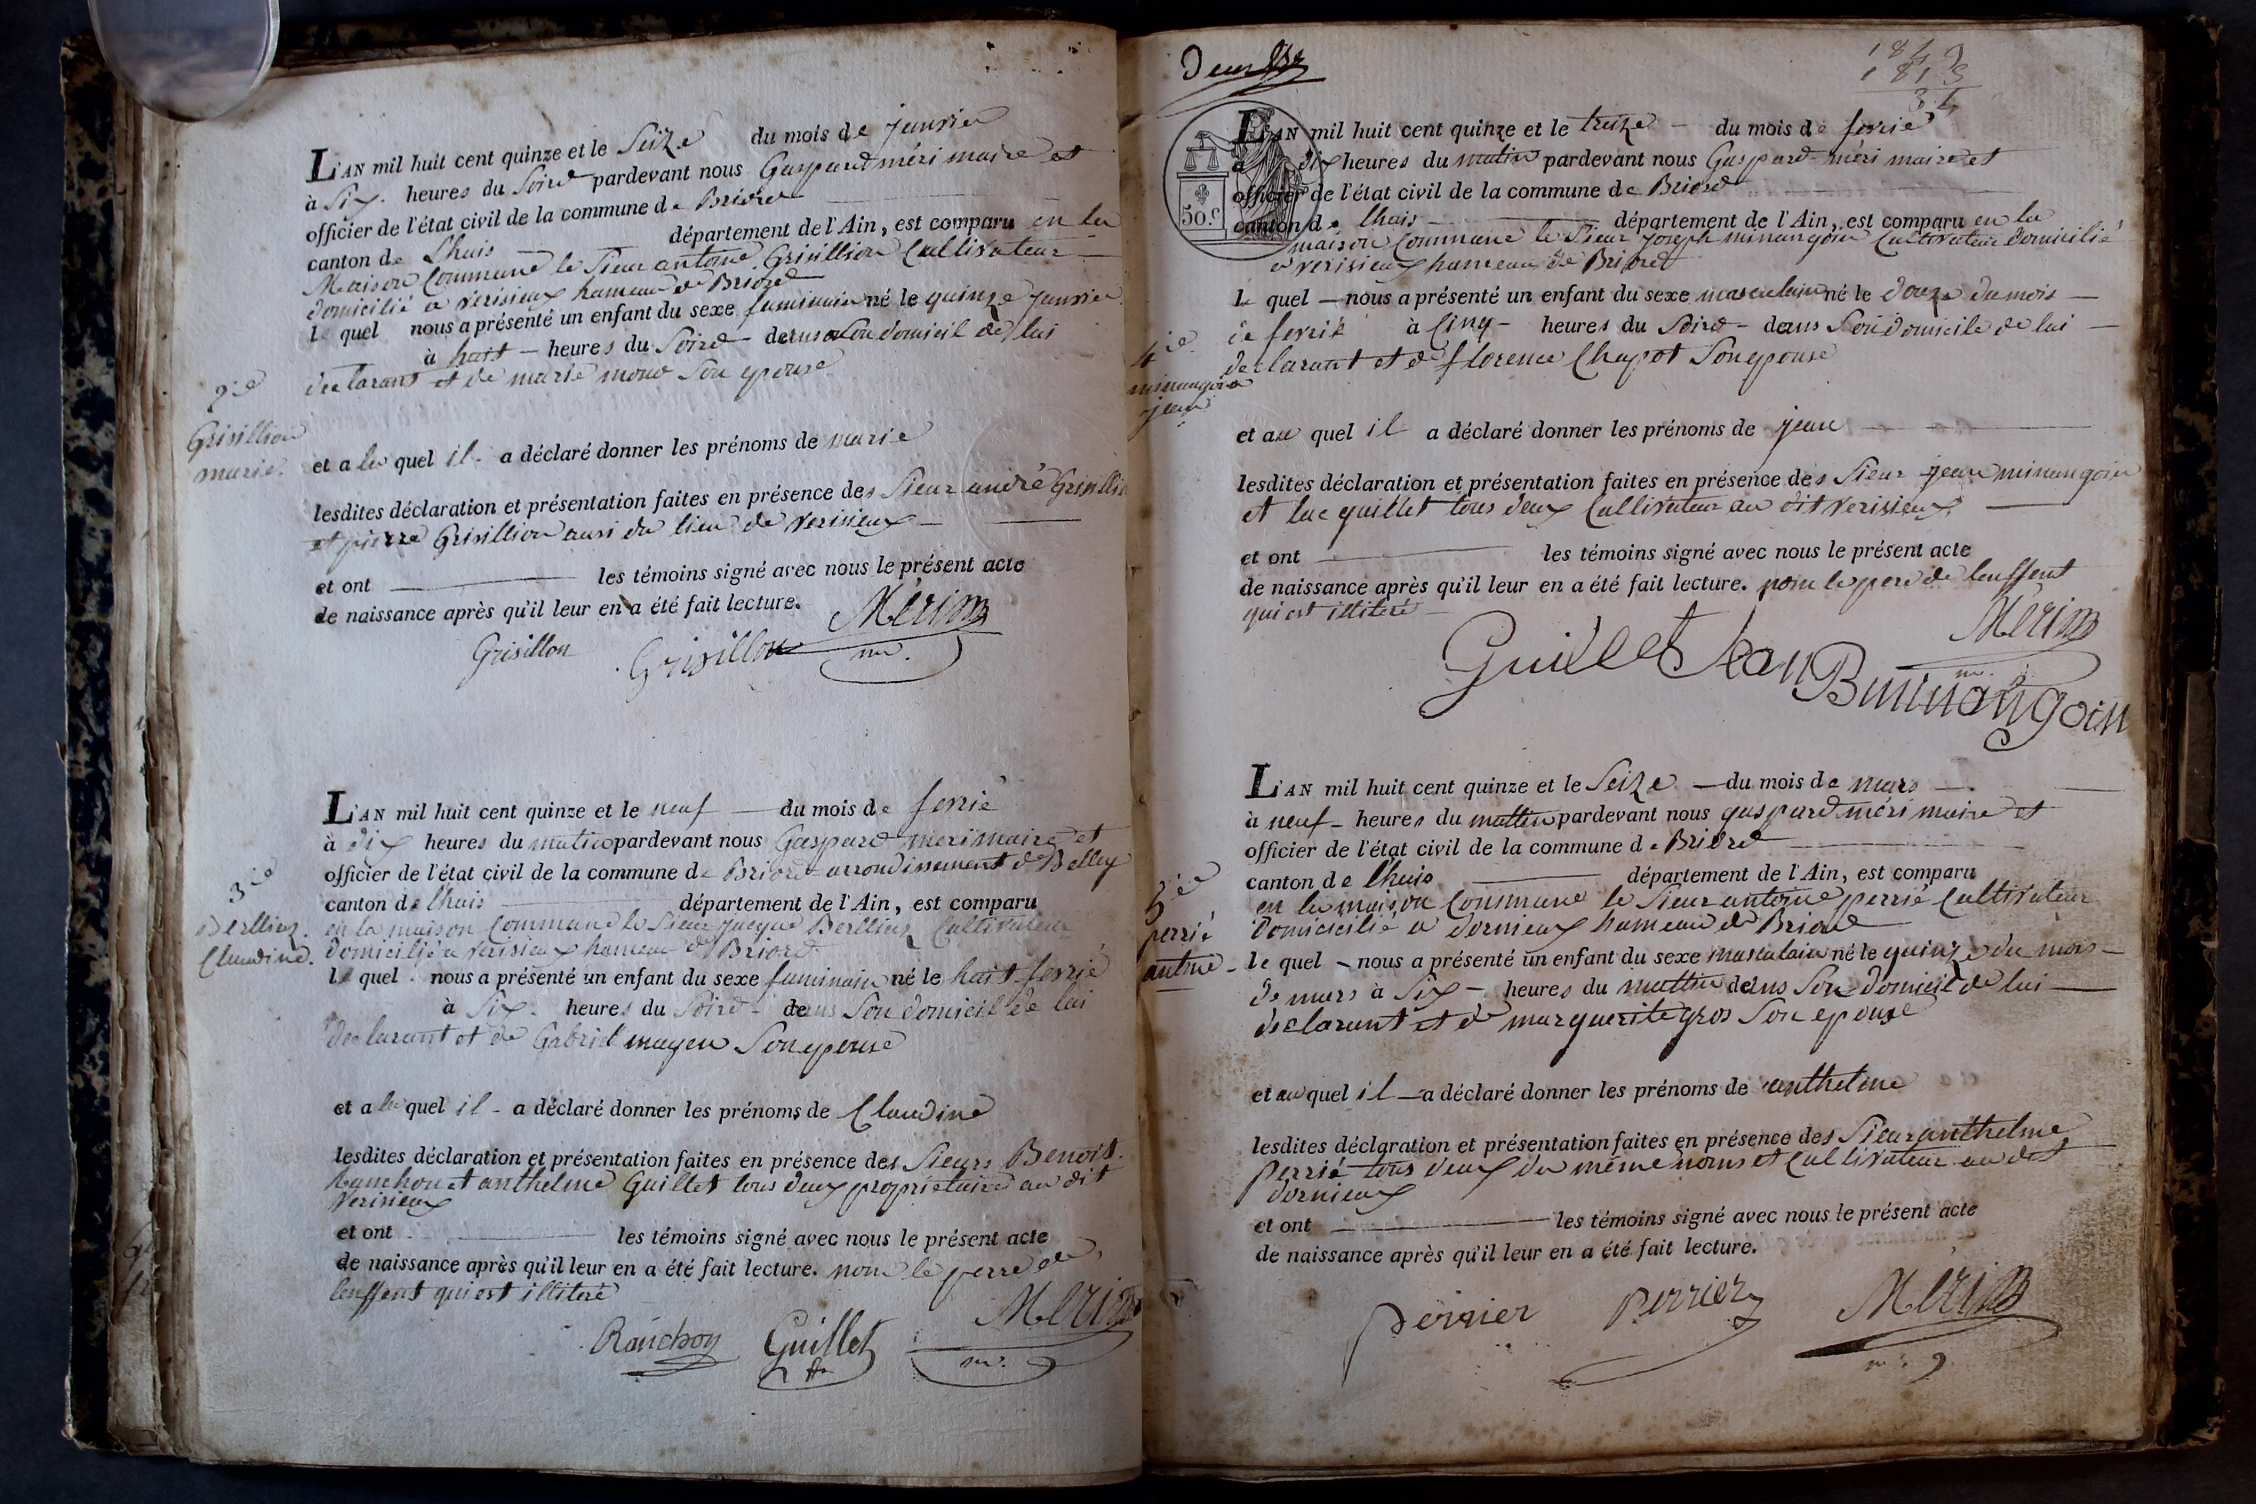 L'AN mil huit cent quinze et le Seize du mois de janvier
à Six heures du Soire pardevant nous Gaspard méri maire et
officier de l'état civil de la commune de Briord
canton de Lhuis département de l'Ain, est comparu en la
Maison Commune le Sieur antoine Grisillion Cultivateur
domicilié a verisieux hameau de Briord
le quel nous a présenté un enfant du sexe faminain né le quinze janvier
à huit heures du Soire dans Son domicil de lui
declarant et de marie Son epouse
2ie
Grisillion
marie.
et a la quel il a déclaré donner les prénoms de marie
lesdites déclaration et présentation faites en présence des Sieur andré Grisillion
et pierre Grisillion ausi du lieu de verisieux
et ont les témoins signé avec nous le présent acte
de naissance après qu'il leur en a été fait lecture.
Mérim
Grisillon Grisillon mr.
L'AN mil huit cent quinze et le neuf du mois de fevrié
à dix heures du matin pardevant nous Gaspard meri maire et
officier de l'état civil de la commune de Briord arrondissement de Belley
canton de lhuis département de l'Ain, est comparu
3ie
Berlliez.
Claudine.
en la maison Commune le Sieur Jacque Berlliez Cultivateur
domicilié a verisieux hameau de Briord
le quel nous a présenté un enfant du sexe faminain né le huit fevrié
à Six heures du Soire dans Son domicil de lui
declarant et de Gabriel mayen Son epouse
et a la quel il a déclaré donner les prénoms de Claudine
lesdites déclaration et présentation faites en présence des Sieurs Benoit
Ranchon et anthelme Guillet tous deux propriétaire au dit
Verisieux
et ont les témoins signé avec nous le présent acte
de naissance après qu'il leur en a été fait lecture. non le perre de
lenffent qui est illitéré
Mérim
Ranchon Guillet mr.
Deux
1849
1815
34
50 c.
L'AN mil huit cent quinze et le treize du mois de fevrié
à dix heures du matin pardevant nous Gaspard méri maire et
officier de l'état civil de la commune de Briord
canton de lhuis département de l'Ain, est comparu en la
maison Commune le Sieur joseph minangoin Cultivateur domicilié
a verisieux hameau de Briord
le quel nous a présenté un enfant du sexe masculain né le douze du mois
de fevrié à Cinq heures du Soire dans Son domicile de lui
declarant et de florence Chapot Son epouse
4ie
minangoin
jean
et au quel il a déclaré donner les prénoms de jean
lesdites déclaration et présentation faites en présence des Sieur jean minangoin
et luc guillet tous deux Cultivateur au dit verisieux
et ont les témoins signé avec nous le présent acte
de naissance après qu'il leur en a été fait lecture. le pere de lenffent
qui est illitéré
Mérim
Guillet mr.
L'AN mil huit cent quinze et le Seize du mois de mars
à neuf heures du mattin pardevant nous gaspard méri maire et
officier de l'état civil de la commune de Briord
canton de lhuis département de l'Ain, est comparu
en la maison Commune le Sieur antoine perrié Cultivateur
domicicilié a dornieux hameau de Briord
5ie
perrié
antme
le quel nous a présenté un enfant du sexe masculain né le quinze du mois
de mars à Six heures du mattin dans Son domicil de lui
declarant et de marguerite gros Son epouse
et au quel il a déclaré donner les prénoms de anthelme
lesdites déclaration et présentation faites en présence des Sieur anthelme
perrié tous deux du même noms et Cultivateur au dit
dornieux
et ont les témoins signé avec nous le présent acte
de naissance après qu'il leur en a été fait lecture.
Perrier Perrier Mérim
mr.